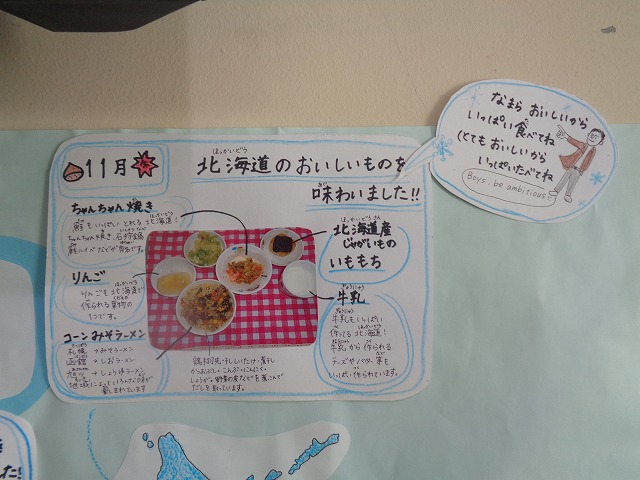 11月
ほっかいどう
北海道のおいしいものを
味わいました!!
なまら おいしいから
いっぱい食べてね
(とても おいしいから
いっぱいたべてね
Boys, be ambitious!
ちゃんちゃん焼き
鮭もいっぱいとれる北海道!
ちゃんちゃん焼き、石狩鍋
りんご
りんごも北海道で
作られる果物の
1つです。
コーンみそラーメン
札幌→みそラーメン
函館→しおラーメン
旭川→しょうゆラーメン
北海道産
じゃがいもの
いももち
牛乳
牛乳もいっぱい
作れる北海道!
牛乳から作られる
チーズやバター、菓子も
いっぱい作られています。
かつおぶし・こんぶ・にんにく・
しょうが・野菜の皮などを煮こんで
だしを取っています。